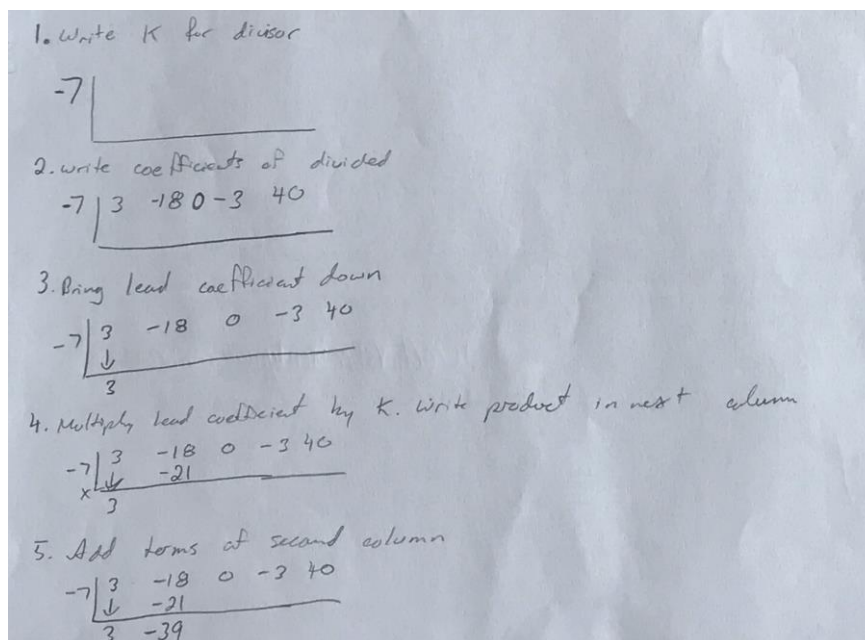 1. Write K for divisor
-7
2. write coefficients of divided
-7 3 -18 0 -3 40
3. Bring lead coefficient down
-7 3 -18 0 -3 40
↓
3
4. Multiply lead coefficient by K. Write product in next column
-7 3 -18 0 -3 40
x ↓ -21
3
5. Add terms of second column
-7 3 -18 0 -3 40
↓ -21
3 -39